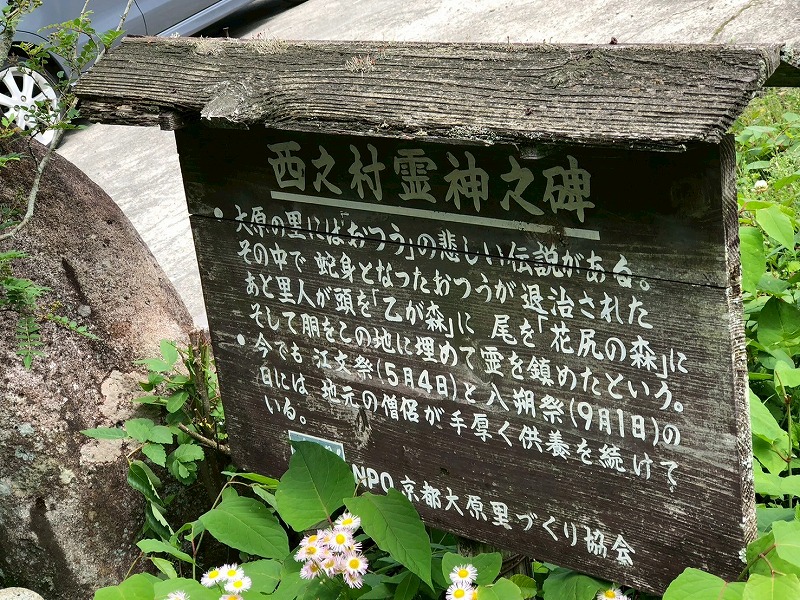 西之村霊神之碑
・大原の里には「おつう」の悲しい伝説がある。
その中で 蛇身となったおつうが 退治された
あと里人が頭を「乙が森」に 尾を「花尻の森」に
そして胴をこの地に埋めて霊を鎮めたという。
・今でも 江文祭(5月4日)と八朔祭(9月1日)の
日には、地元の僧侶が手厚く供養を続けて
いる。
NPO 京都大原里づくり協会